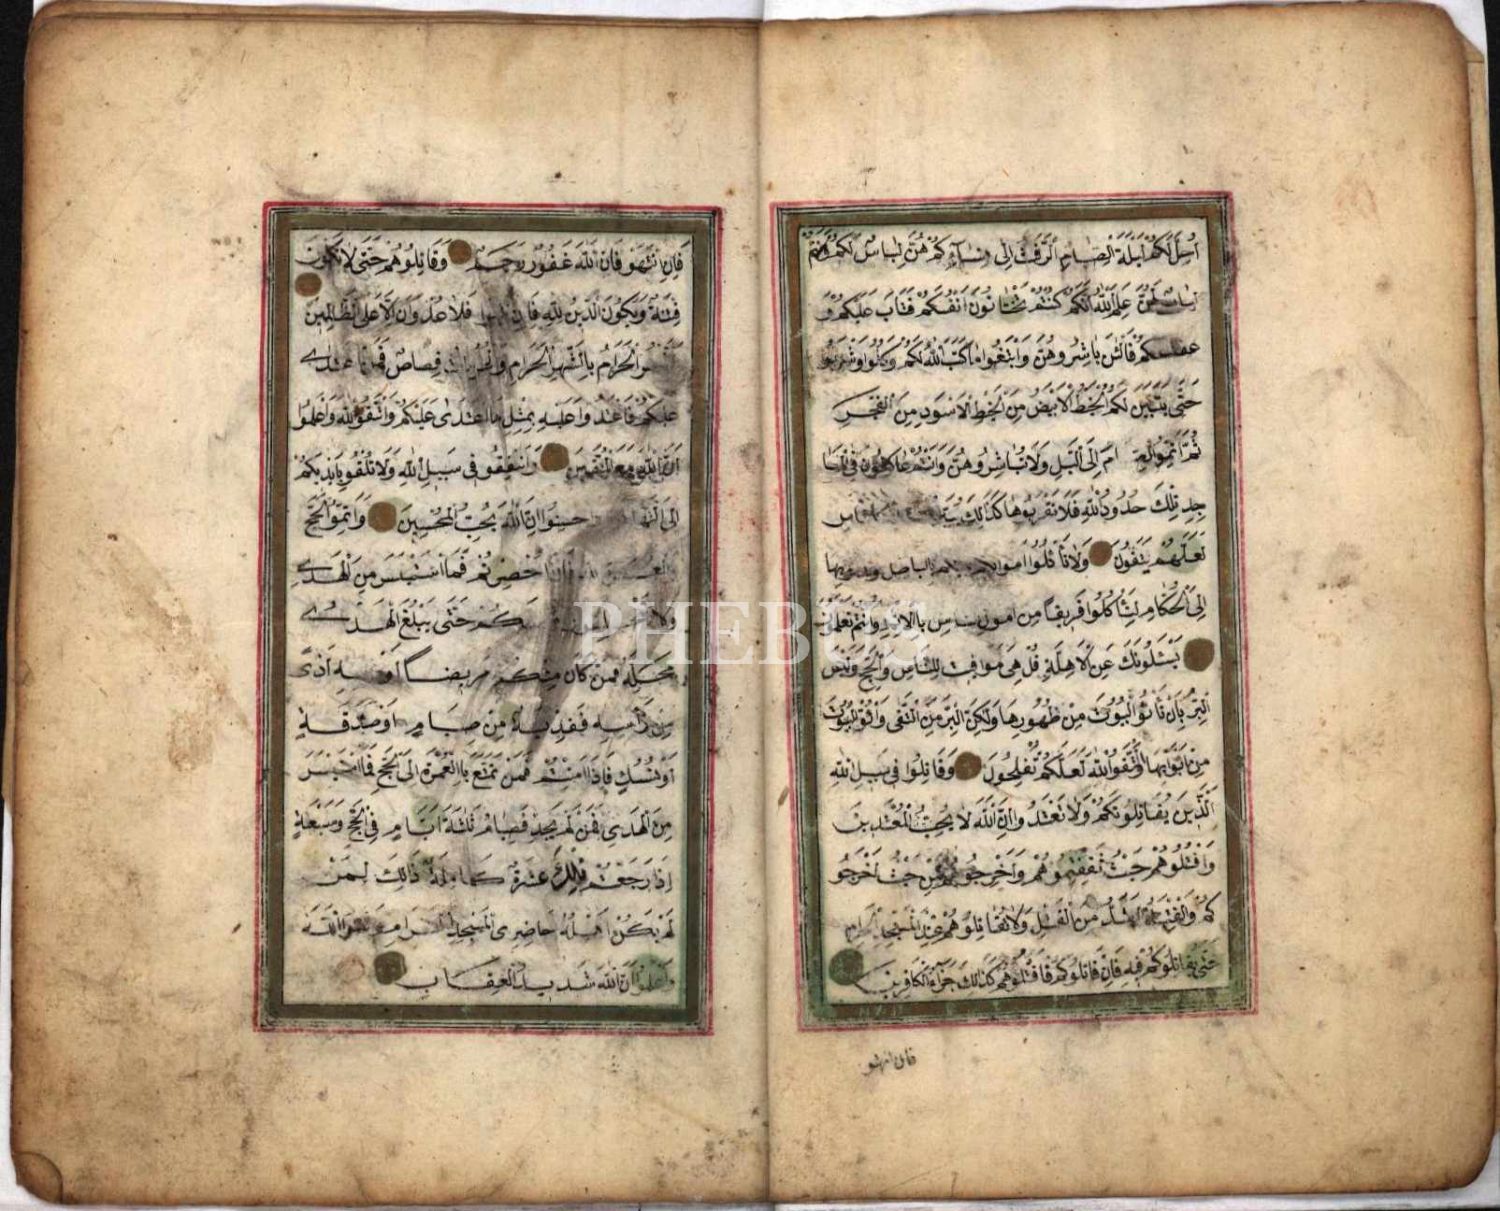 اُحِلَّ لَكُمْ لَيْلَةَ الصِّيَامِ الرَّفَثُ اِلٰى نِسَاۤءِكُمْ هُنَّ لِبَاسٌ لَكُمْ وَاَنْتُمْ
لِبَاسٌ لَهُنَّ عَلِمَ اللّٰهُ اَنَّكُمْ كُنْتُمْ تَخْتَانُونَ اَنْفُسَكُمْ فَتَابَ عَلَيْكُمْ وَ
فَالْئٰنَ بَاشِرُوهُنَّ وَابْتَغُوا مَا كَتَبَ اللّٰهُ لَكُمْ وَكُلُوا وَشْرَبُو
حَتّٰى يَتَبَيَّنَ لَكُمُ الْخَيْطُ الْاَبْيَضُ مِنَ الْخَيْطِ الْاَسْوَدِ مِنَ الْفَجْرِ
ثُمَّ اَتِمُّو الصِّيَامَ اِلَى الَّيْلِ وَلَا تُبَاشِرُوهُنَّ وَاَنْتُمْ عَاكِفُونَ فِى الْمَسَا
جِدِ تِلْكَ حُدُودُ اللّٰهِ فَلَا تَقْرَبُوهَا كَذٰلِكَ
لَعَلَّهُمْ يَتَّقُونَ وَلَا تَاْكُلُوا اَمْوَالَكُمْ بَيْنَكُمْ بِالْبَاطِلِ وَتُدْلُوا بِهَا
اِلَى الْحُكَّامِ لِتَاْكُلُوا فَرِيقًا مِنْ اَمْوَالِ النَّاسِ بِالْاِثْمِ وَاَنْتُمْ تَعْلَمُونَ
يَسْئَلُونَكَ عَنِ الْاَهِلَّةِ قُلْ هِىَ مَوَاقِيتُ لِلنَّاسِ وَالْحَجِّ وَلَيْسَ
الْبِرُّ بِاَنْ تَاْتُو الْبُيُوتَ مِنْ ظُهُورِهَا وَلٰكِنَّ الْبِرَّ مَنِ التَّقٰى وَاْتُوالْبُيُوتَ
مِنْ اَبْوَابِهَا وَاتَّقُوا اللّٰهَ لَعَلَّكُمْ تُفْلِحُونَ وَقَاتِلُوا فِى سَبِيلِ اللّٰهِ
الَّذِينَ يُقَاتِلُونَكُمْ وَلَا تَعْتَدُو اِنَّ اللّٰهَ لَا يُحِبُّ الْمُعْتَدِينَ
وَاقْتُلُوهُمْ حَيْثُ ثَقِفْتُمُوهُمْ وَاَخْرِجُوهُمْ مِنْ حَيْثُ اَخْرَجُو
كُمْ وَالْفِتْنَةُ اَشَدُّ مِنَ الْقَتْلِ وَلَا تُقَاتِلُوهُمْ عِنْدَ الْمَسْجِدِ الْحَرَامِ
حَتّٰى يُقَاتِلُوكُمْ فِيهِ فَاِنْ قَاتَلُوكُمْ فَاقْتُلُوهُمْ كَذٰلِكَ جَزَاۤءُ الْكَافِرِينَ
فان انتهو
فَاِنِ انْتَهَوْ فَاِنَّ اللّٰهَ غَفُورٌ رَحِيمٌ وَقَاتِلُوهُمْ حَتّٰى لَا تَكُونَ
فِتْنَةٌ وَيَكُونَ الدِّينُ لِلّٰهِ فَاِنِ انْتَهَوْا فَلَا عُدْوَانَ اِلَّا عَلَى الظَّالِمِينَ
الْحَرَامُ بِالشَّهْرِ الْحَرَامِ وَالْحُرُمَاتُ قِصَاصٌ فَمَنِ اعْتَدٰى
عَلَيْكُمْ فَاعْتَدُوا عَلَيْهِ بِمِثْلِ مَا اعْتَدٰى عَلَيْكُمْ وَاتَّقُو اللّٰهَ وَاعْلَمُوا
اَنَّ اللّٰهَ مَعَ الْمُتَّقِينَ وَاَنْفِقُو فِى سَبِيلِ اللّٰهِ وَلَا تُلْقُو بِاَيْدِيكُمْ
اِلَى حْسِنُوا اِنَّ اللّٰهَ يُحِبُّ الْمُحْسِنِينَ وَاَتِمُّو الْحَجَّ
لِلّٰهِ فَاِنْ اُحْصِرْتُمْ فَمَا اسْتَيْسَرَ مِنَ الْهَدْىِ
وَلَا كُمْ حَتّٰى يَبْلُغَ الْهَدْىُ
مَحِلَّهُ فَمَنْ كَانَ مِنْكُمْ مَرِيضًا اَوْ بِهِ اَذًى
مِنْ رَاْسِهِ فَفِدْيَةٌ مِنْ صِيَامٍ اَوْ صَدَقَةٍ
اَوْ نُسُكٍ فَاِذَا اَمِنْتُمْ فَمَنْ تَمَتَّعَ بِاالْعُمْرَةِ اِلَى الْحَجِّ فَمَا اسْتَيْسَرَ
مِنَ الْهَدْىِ فَمَنْ لَمْ يَجِدْ فَصِيَامُ ثَلٰثَةِ اَيَّامٍ فِى الْحَجِّ وَسَبْعَةٍ
اِذَا رَجَعْتُمْ تِلْكَ عَشَرَةٌ كَامِلَةٌ ذٰلِكَ لِمَنْ
لَمْ يَكُنْ اَهْلُهُ حَاضِرِى الْمَسْجِدِ الْحَرَامِ وَاتَّقُوا اللّٰهَ
وَاعْلَمُوا اَنَّ اللّٰهَ شَدِيدُ الْعِقَابِ
PHEBUS